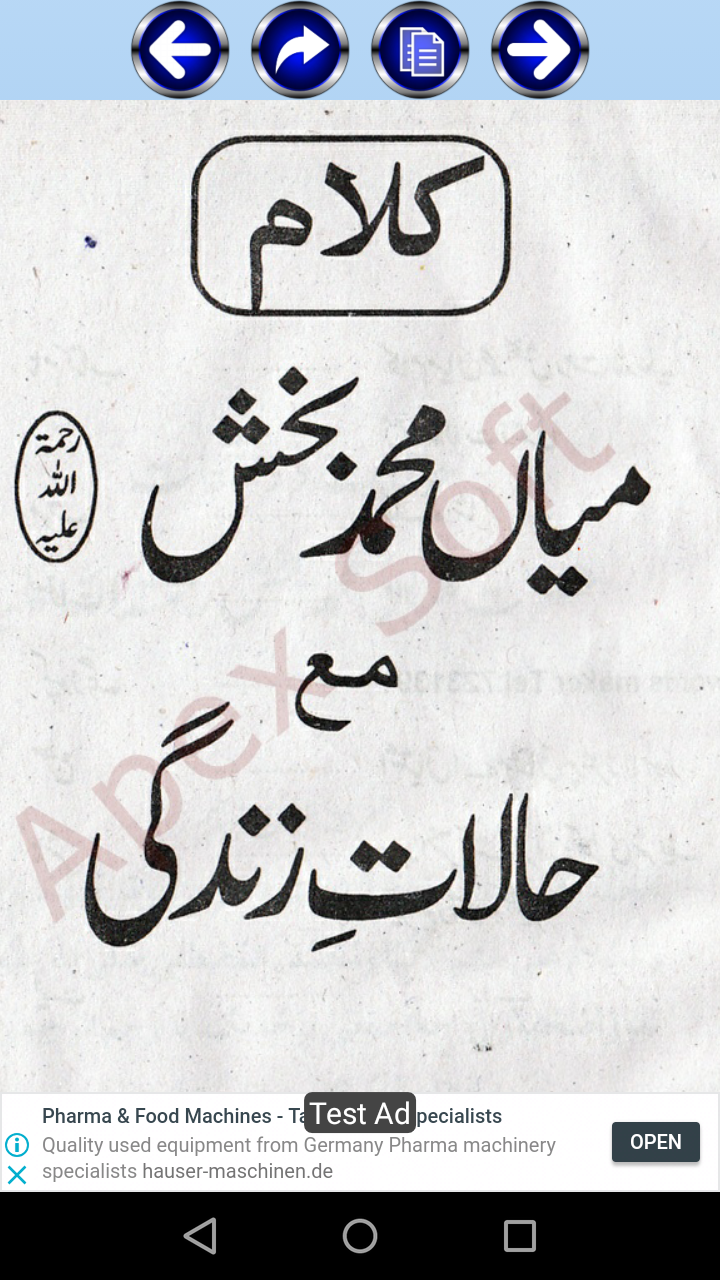 کلام
میاں محمد بخش
رحمۃ
اللہ
علیہ
مع
حالاتِ زندگی
Apex Soft
Pharma & Food Machines - Ta
pecialists
Test Ad
Quality used equipment from Germany Pharma machinery
specialists hauser-maschinen.de
OPEN